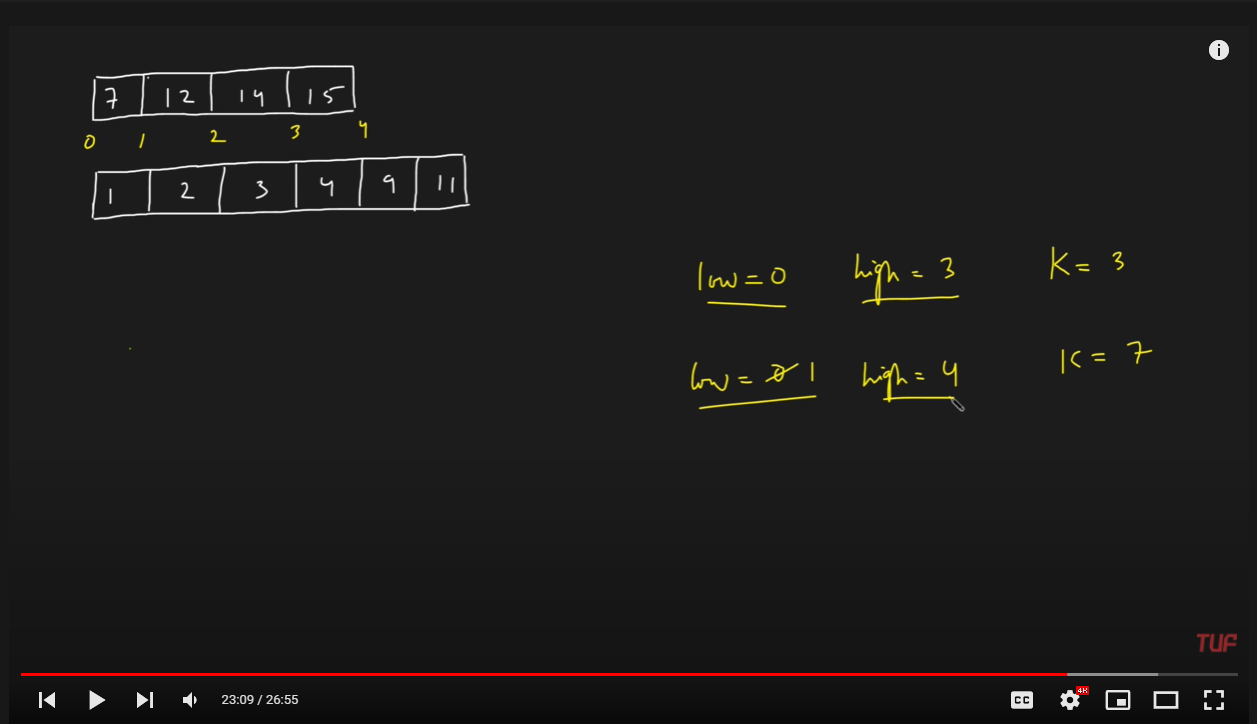 7 12 14 15
0 1 2 3 4
1 2 3 4 9 11
low = 0 high = 3 K = 3
low = 0 1 high = 4 K = 7
TUF
23:09 / 26:55
CC
4K